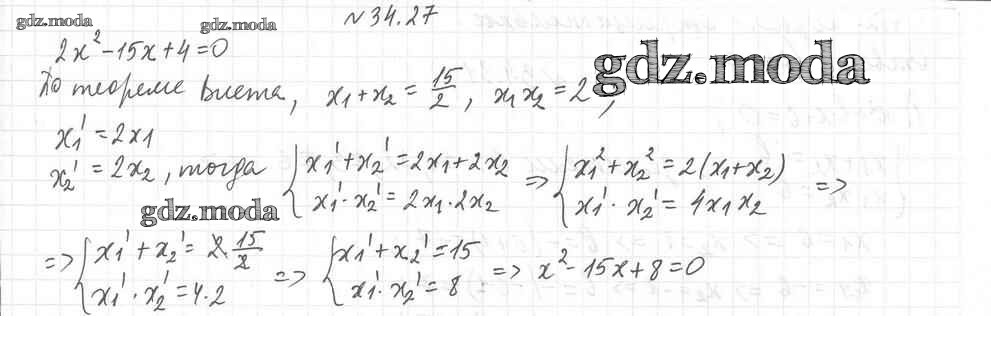 gdz.moda gdz.moda №34.27
2x² - 15x + 4 = 0
gdz.moda
По теореме Виета, x₁ + x₂ = 15/2, x₁x₂ = 2,
x₁' = 2x₁
x₂' = 2x₂, тогда { x₁' + x₂' = 2x₁ + 2x₂ ; x₁' · x₂' = 2x₁ · 2x₂ => { x₁² + x₂² = 2(x₁ + x₂) ; x₁' · x₂' = 4x₁x₂ =>
gdz.moda
=> { x₁' + x₂' = 2 · 15/2 ; x₁' · x₂' = 4 · 2 => { x₁' + x₂' = 15 ; x₁' · x₂' = 8 => x² - 15x + 8 = 0